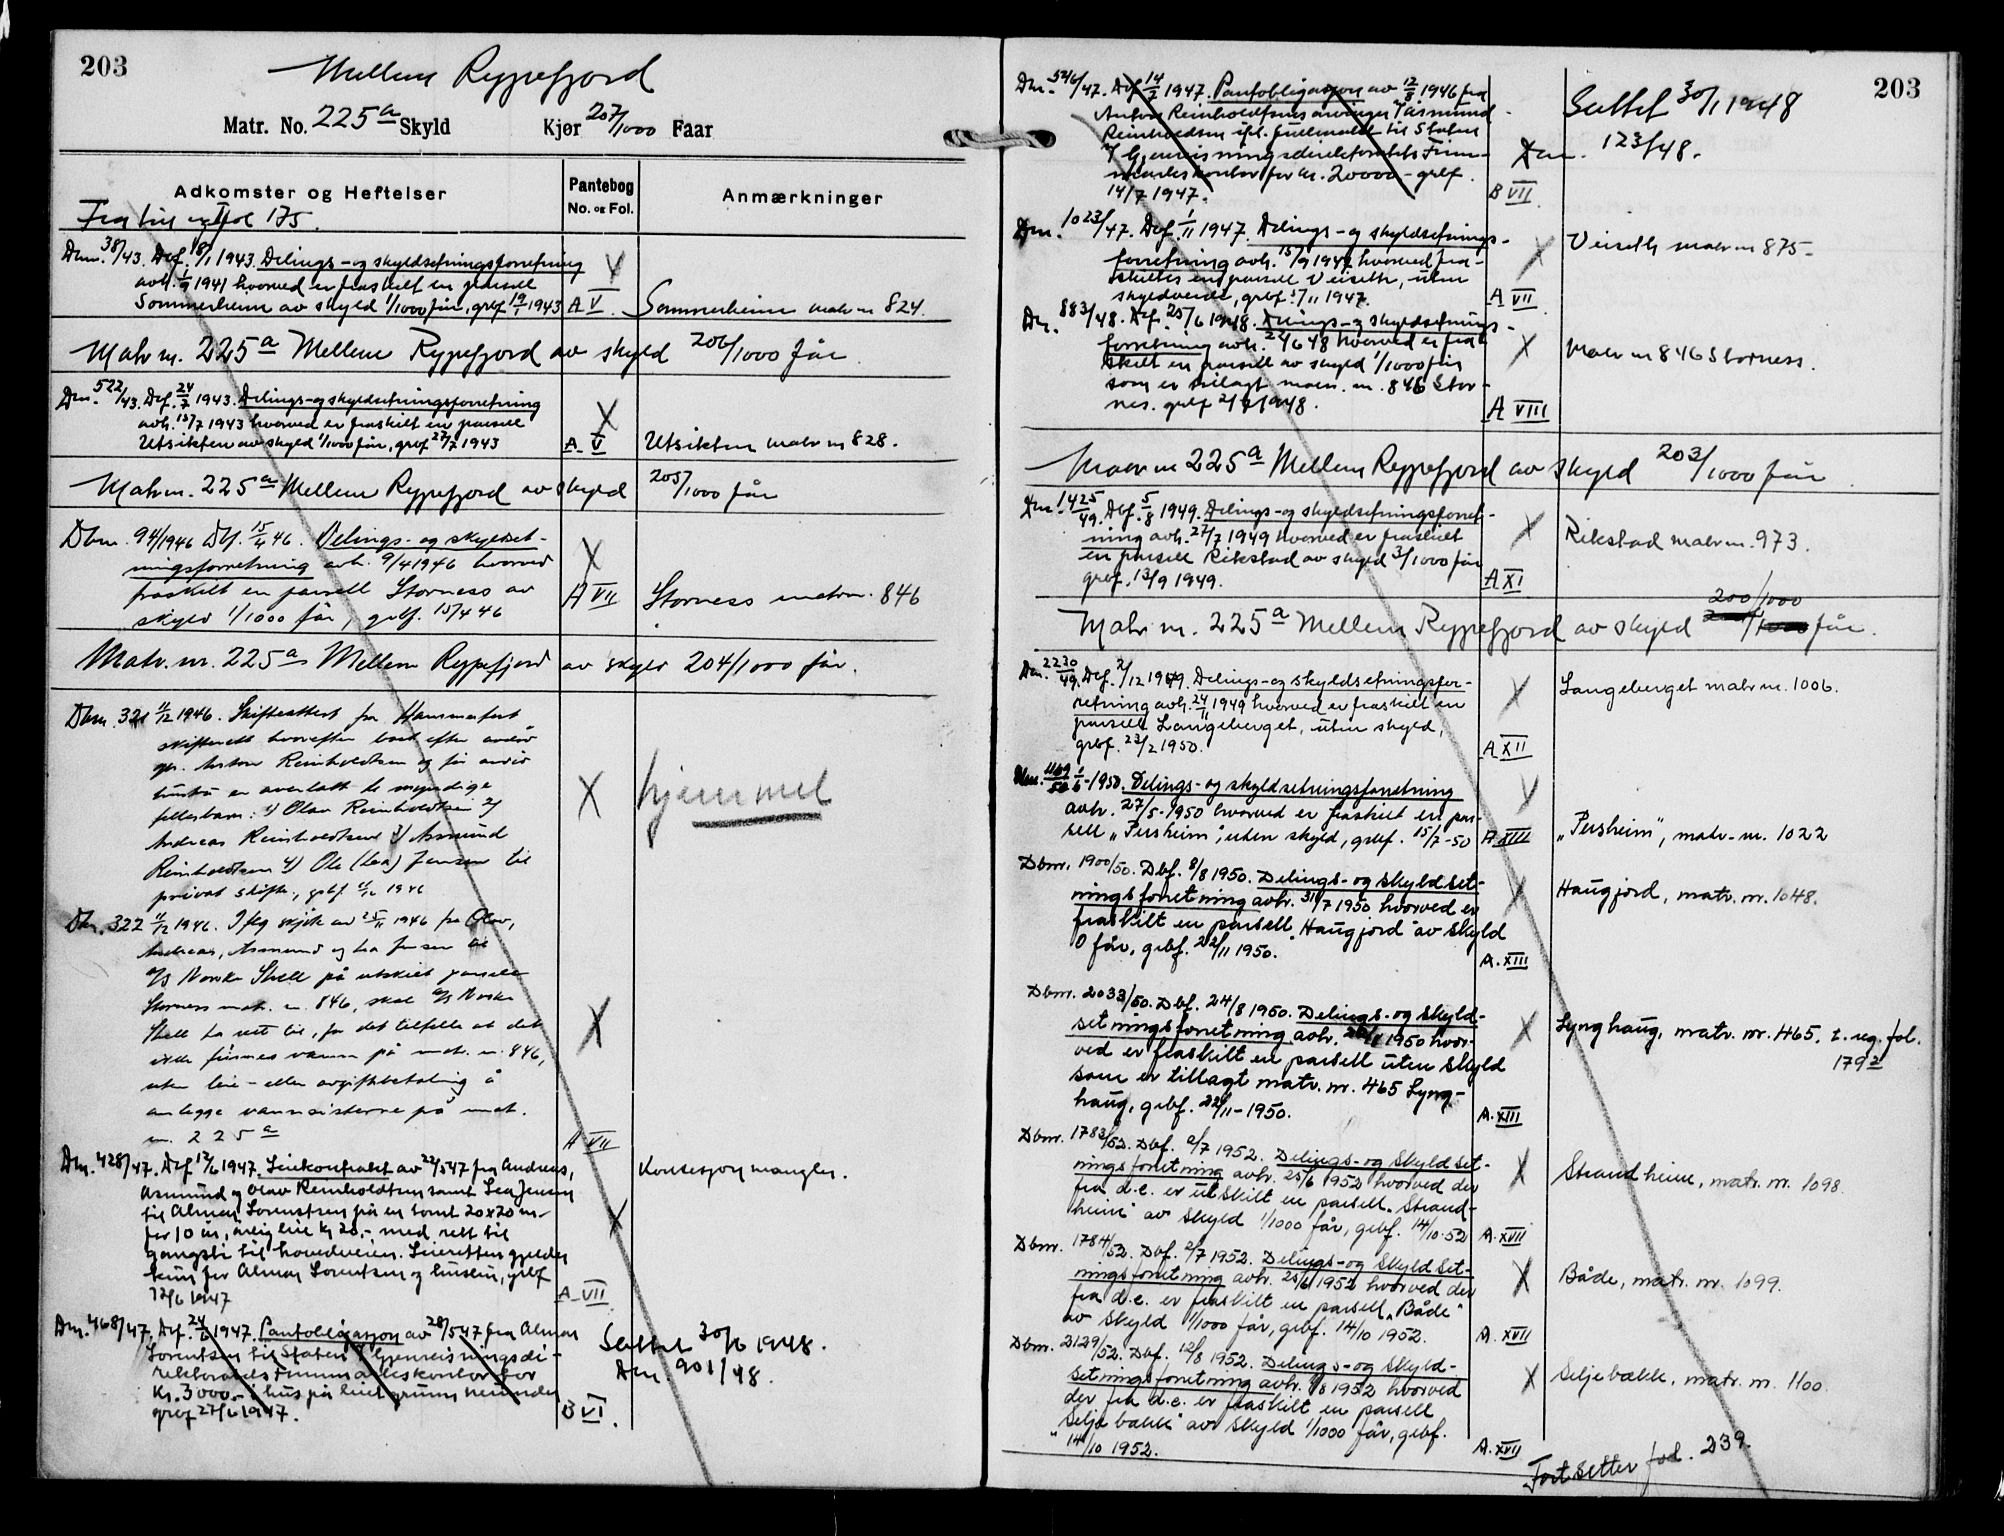 203
Mellem Rypefjord
Matr. No. 225a Skyld Kjør 207/1000 Faar
Adkomster og Heftelser
Pantebog No. og Fol.
Anmærkninger
Fra fol 175.
Dbnr. 38/43. Dbf. 18/1 1943. Delings- og skyldsetningsforretning
avh. 1/9 1941 hvorved er fraskilt en parsell
Sommerheim av skyld 1/1000 får, grbf. 19/1 1943 A V Sommerheim matr nr 824.
Matr nr. 225a Mellem Rypefjord av skyld 206/1000 får
Dnr. 522/43. Dbf. 24/7 1943. Delings- og skyldsetningsforretning
avh. 15/7 1943 hvorved er fraskilt en parsell
Utsikten av skyld 1/1000 får, grbf 27/7 1943 A V Utsikten matr nr 828.
Matr nr. 225a Mellem Rypefjord av skyld 205/1000 får
Dbnr. 94/1946 Dbf. 15/4 46. Delings- og skyldset-
ningsforretning avh. 9/4 1946 hvorved
fraskilt en parsell Storness av
skyld 1/1000 får, grbf. 15/4 46 A VII Storness matr nr. 846
Matr. nr. 225a Mellem Rypefjord av skyld 204/1000 får.
Dbnr. 321 11/12 1946. Skifteattest fra Hammerfest
skifterett hvorefter boet efter
Anton Reinholdtsen og
hustru er overlatt de myndige
fellesbarn: 1) Olav Reinholdtsen 2)
Andreas Reinholdtsen 3) Asmund
Reinholdtsen 4) Jensen til
privat skifte, grbf. 11/12 1946
hjemmel
Dbnr. 322 11/12 1946. I flg skjøte av 25/11 1946 fra Olav,
Andreas, Asmund og Lea Jensen til
A/S Norske Shell på utskilt parsell
Storness matr. nr. 846, skal A/S Norske
Shell ha rett til, for det tilfelle at det
ikke finnes vann på matr. nr. 846,
uten leie- eller avgiftsbetaling å
anlegge vanncisterne på matr.
nr. 225a A VII
Dnr. 428/47. Dbf 12/6 1947. Leiekontrakt av 22/5 47 fra Andreas,
Asmund og Olav Reinholdtsen samt Lea Jensen
til Almar Lorentsen på en tomt 20x20 m.
for 10 år, årlig leie kr 20,- med rett til
gangsti til hovedveien. Leieretten gjelder
kun for Almar Lorentsen og hustru, grbf
12/6 1947 A VII
Konsesjon mangler.
Dnr. 468/47. Dbf. 24/6 1947. Pantobligasjon av 28/5 47 fra Almar
Lorentsen til Staten v/ Gjenreisningsdi-
rektoratets Finnmarkskontor for
kr. 3000.- i hus på leiet grunn
grbf 27/6 1947. B VI.
Slettet 30/6 1948.
Dnr 901/48.
203
Dnr. 546/47. Dbf 14/7 1947. Pantobligasjon av 12/8 1946 fra
Anton Reinholdtsens arvinger v/ Asmund
Reinholdtsen ifl. fullmakt til Staten
v/ Gjenreisningsdirektoratets Finn-
markskontor for kr. 20000.- grbf.
14/7 1947. B VII
Slettet 30/1 1948
Dnr. 123/48.
Dnr. 1023/47. Dbf. 1/11 1947. Delings- og skyldsetnings-
forretning avh. 15/9 1947 hvorved fra-
skiltes en parsell Veiseth, uten
skyldverdi, grbf. 17/11 1947. A VII
Veiseth matr nr 875-
Dnr. 883/48. Dbf. 25/6 1948. Delings- og skyldsetnings-
forretning avh. 22/6 48 hvorved er fra-
skilt en parsell av skyld 1/1000 får
som er tillagt matr. nr. 846 Stor-
nes. grbf 2/7 1948. A VIII
Matr nr 846 Storness.
Matr nr 225a Mellem Rypefjord av skyld 203/1000 får
Dnr. 1425/49. Dbf. 5/8 1949. Delings- og skyldsetningsforret-
ning avh. 27/7 1949 hvorved er fraskilt
en parsell Rikstad av skyld 3/1000 får
grbf. 13/9 1949. A XI
Rikstad matr nr. 973.
Matr nr. 225a Mellem Rypefjord av skyld 200/1000 får.
Dnr. 2230/49. Dbf. 2/12 1949. Delings- og skyldsetningsfor-
retning avh. 24/11 1949 hvorved er fraskilt en
parsell Langeberget, uten skyld,
grbf. 23/2 1950. A XII
Langeberget matr nr. 1006.
Dbnr. 1169/50 1/6-1950. Delings- og skyldsetningsforretning
avh. 27/5-1950 hvorved er fraskilt en par-
sell „Persheim", uten skyld, grbf. 15/7-50 A XIII „Persheim", matr. nr. 1022
Dbnr. 1900/50. Dbf. 8/8 1950. Delings- og skyldset-
ningsforretning avh. 31/7 1950 hvorved er
fraskilt en parsell „Haugjord" av skyld
0 får, grbf. 22/11 1950. A. XIII
Haugjord, matr. nr. 1048.
Dbnr. 2033/50. Dbf. 24/8 1950. Delings- og skyld-
setningsforretning avh. 1950 hvor-
ved er fraskilt en parsell uten skyld
som er tillagt matr. nr. 465 Lyng-
haug, grbf. 22/11-1950. A. XIII
Lynghaug, matr. nr. 465. t. reg. fol.
179
Dbnr. 1783/52. Dbf. 2/7 1952. Delings- og skyldset-
ningsforretning avh. 25/6 1952 hvorved der
fra d.e. er utskilt en parsell „Strand-
heim" av skyld 1/1000 får, grbf. 14/10-52 A. XVII
Strandheim, matr. nr. 1098.
Dbnr. 1784/52. Dbf. 2/7 1952. Delings- og skyldset-
ningsforretning avh. 25/6 1952 hvorved der
fra d.e. er fraskilt en parsell „Både"
av skyld 1/1000 får, grbf. 14/10 1952. A. XVII
Både, matr. nr. 1099.
Dbnr. 2129/52. Dbf. 12/8 1952. Delings- og skyld-
setningsforretning avh. 1/8 1952 hvorved
der fra d.e. er fraskilt en parsell
„Seljebakk" av skyld 1/1000 får, grbf.
14/10 1952. A. XVII
Seljebakk, matr. nr. 1100.
Fortsetter fol. 239.